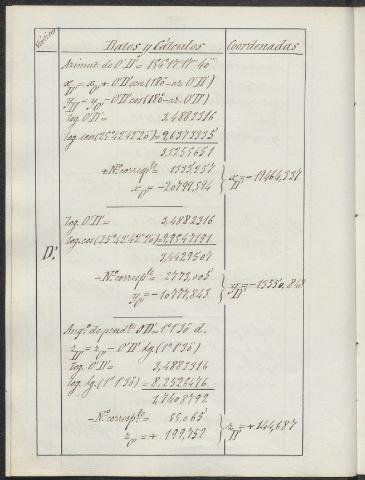 Vértices
Datos y Cálculos
Coordenadas
Azimut de O'D' = 154°17'17"40
x D' = x O' + O'D' sen (180 - az. O'D')
y D' = y O' - O'D' cos (180 - az. O'D')
log. O'D' = 3,4882316
log. sen (25°42'42"26) = 9,6373335
3,1255651
+ N.º corresp.te = 1335,257
x O' = - 20799,594
x D' = - 19464,337
D'.
log. O'D' = 3,4882316
log. cos (25°42'42"26) = 9,9547191
3,4429507
- N.º corresp.te = 2773,005
y O' = - 10777,843
y D' = - 13550,848
Ang.º de pend.te O'D' = 1°1'36 d.
z D' = z O' - O'D' tg. (1°1'36)
log. O'D' = 3,4882316
log. tg. (1°1'36) = 8,2526476
1,7408792
- N.º corresp.te = 55,065
z O' = + 199,752
z D' = + 144,687